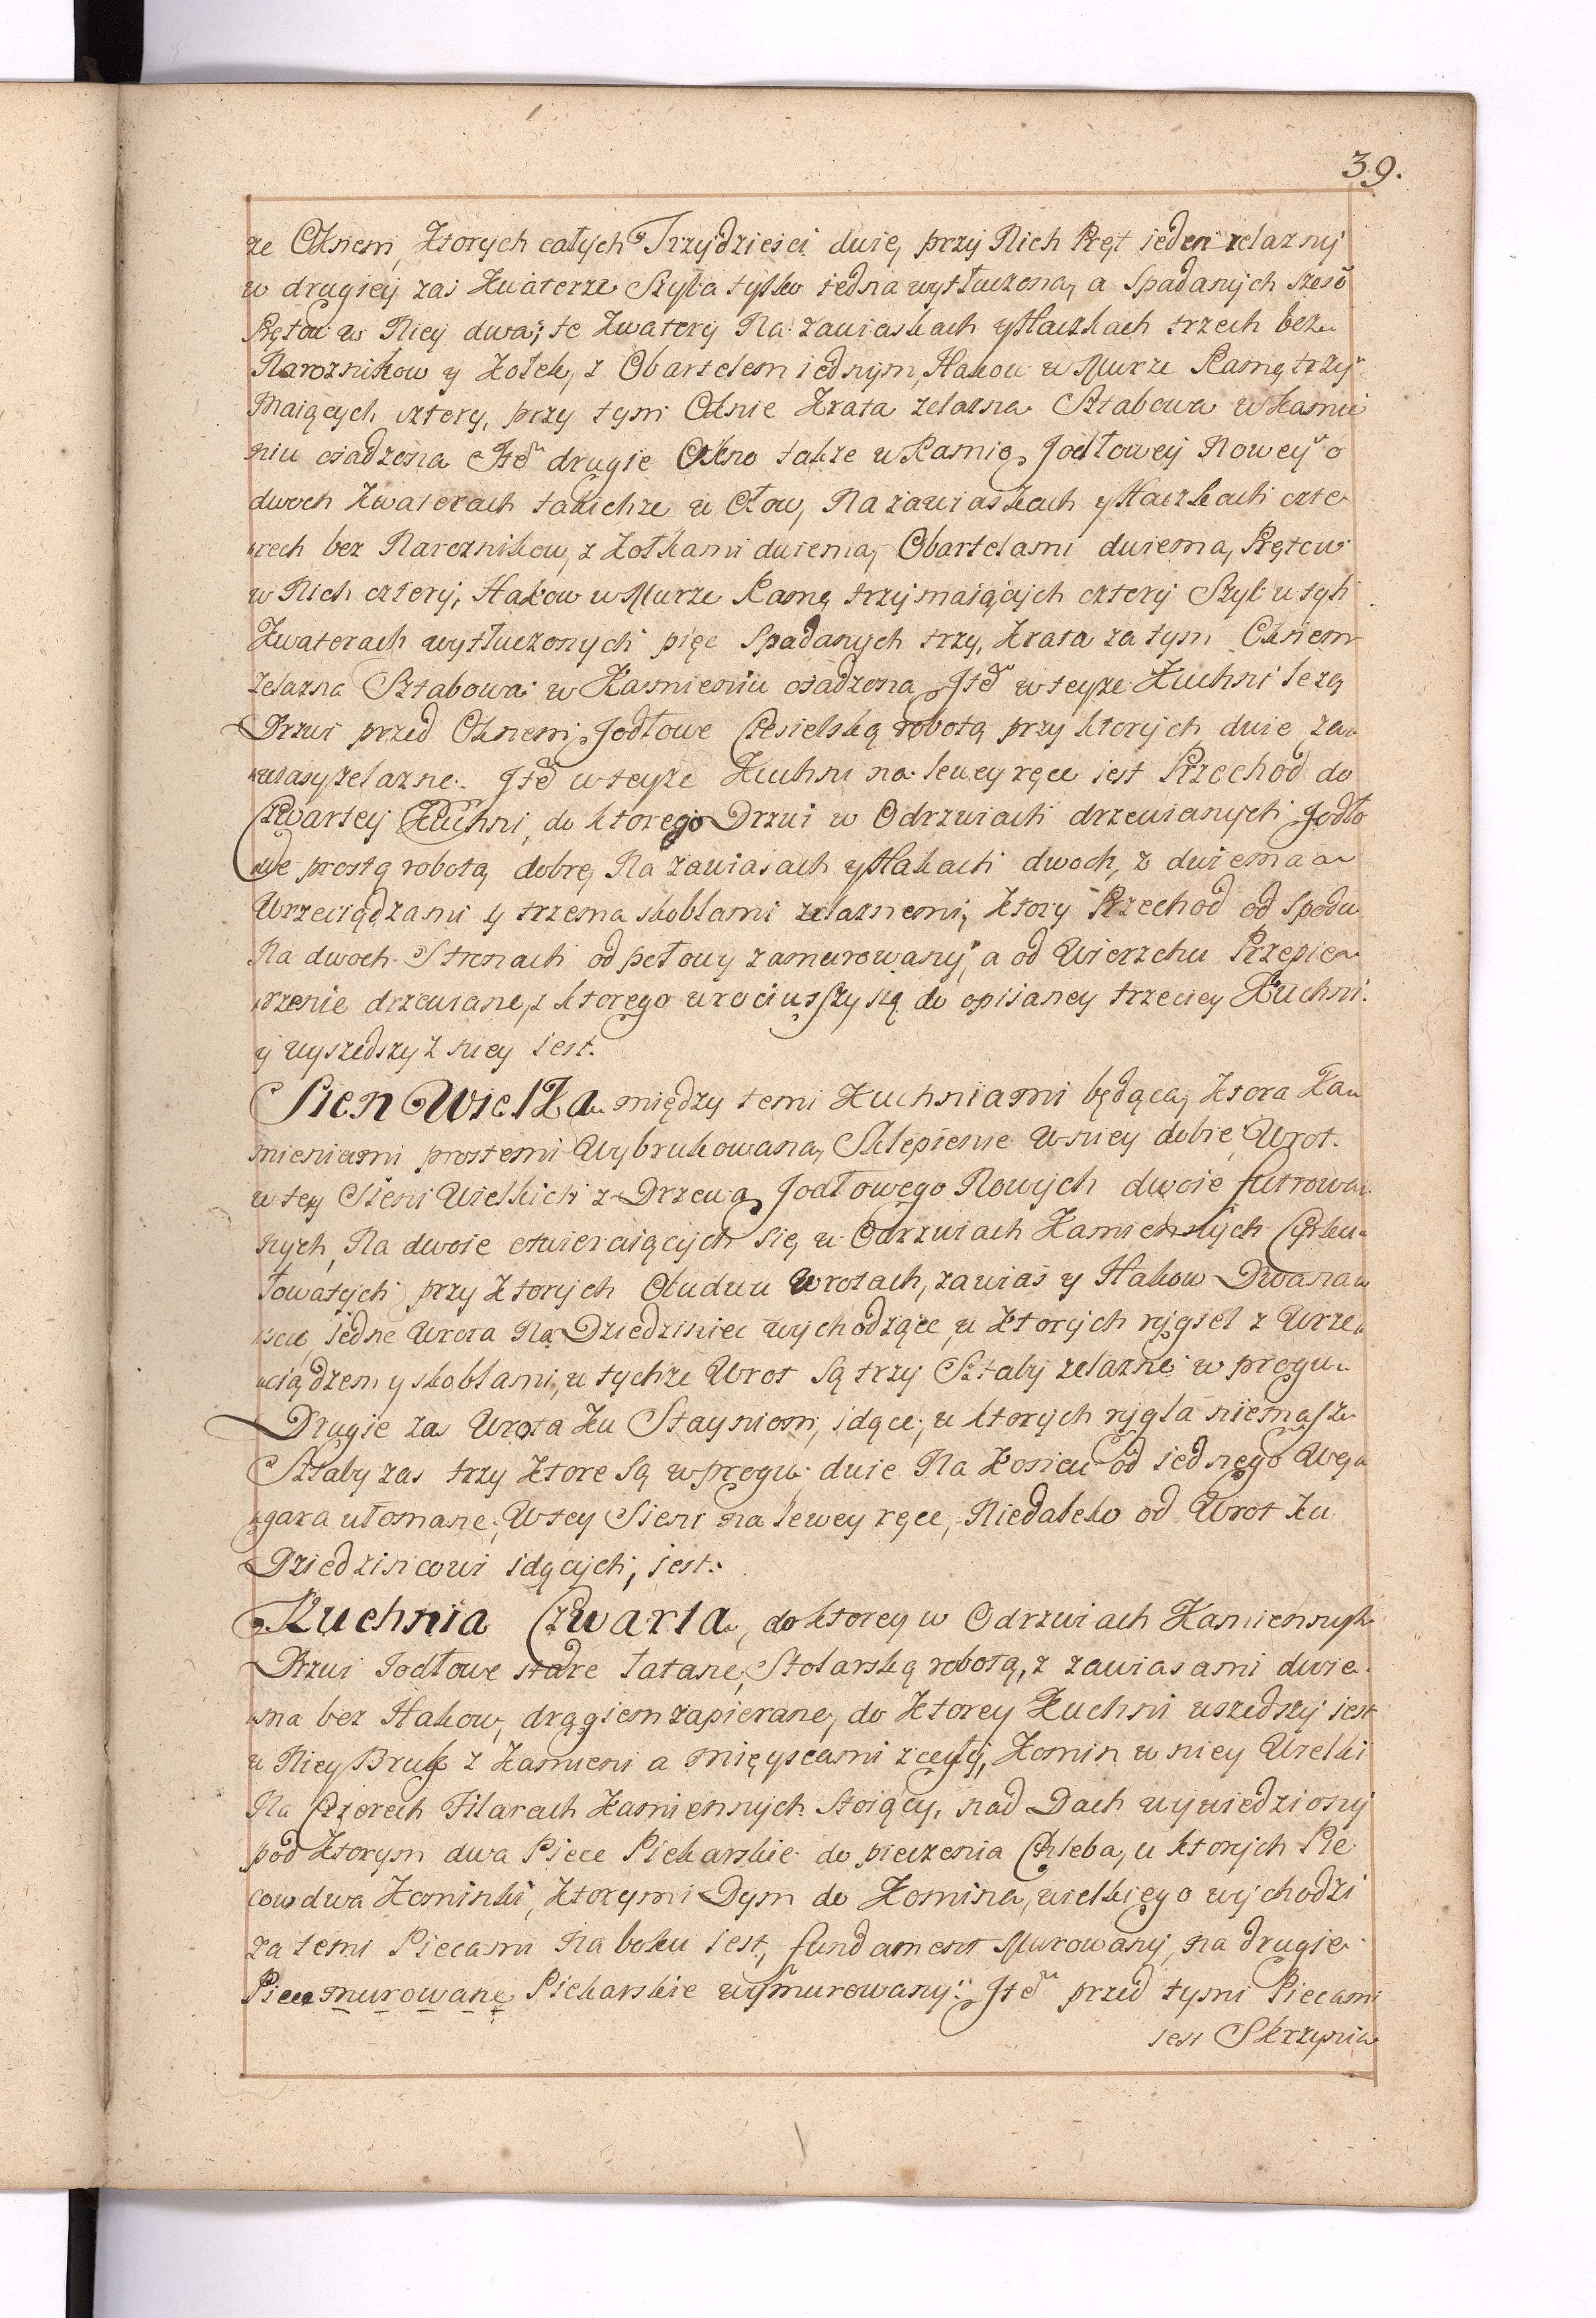 39.
ze Oknem, Ktorych całych Trzydzieści dwie, przy Nich Pręt ieden zelazny
w drugiey zas Kwaterze Szyba tylko iedna wytłuczona, a Spadanych szesć
Prętow w Niey dwa; te Kwatery Na zawiaskach y Haczkach trzech bez
Naroznikow y Kołek, z Obartelem iednym, Hakow w Murze Ramę trzy
maiących cztery, przy tym Oknie Krata zelazna Sztabowa w Kamie
niu osadzona Itẽ drugie Okno takze w Ramie Jodłowey Nowey o
dwoch Kwaterach takichze w Ołow, Na zawiaskach y Haczkach czte
rech bez Naroznikow, z Kołkami dwiema, Obartelami dwiema, Prętow
w Nich cztery, Hakow w Murze Ramę trzymaiących cztery Szyb w tych
Kwaterach wytłuczonych pięc Spadanych trzy, Krata za tym Oknem
zelazna Sztabowa w Kamieniu osadzona Itẽ w teyze Kuchni lezą
Drzwi przed Oknem Jodłowe Ciesielską robotą przy ktorych dwie za
wiasy zelazne. Itẽ w teyze Kuchni na lewey ręce iest Przechod do
Czwartey Kuchni, do ktorego Drzwi w Odrzwiach drzewianych Jodło
we prostą robotą dobre, Na zawiasach y Hakach dwoch, z dwiema
Wrzeciądzami y trzema skoblami zelaznemi, Ktory Przechod od spodu
Na dwoch Stronach od połowy zamurowany, a od Wierzchu Przepie
rzenie drzewiane, z ktorego wrociwszy się do opisaney trzeciey Kuchni
y wyszedszy z niey iest.
Sien Wielka między temi Kuchniami będąca, Ktora Ka
mieniami prostemi Wybrukowana, Sklepienie w niey dobre, Wrot
w tey Sieni Wielkich z Drzewa Jodłowego Nowych dwoie futrowa
nych, Na dwoie otwieraiących się w Odrzwiach Kamiennych Cyrku
łowatych przy Ktorych Obudwu Wrotach, zawias y Hakow Dwana
scie, iedne Wrota Na Dziedziniec wychodzące, u Ktorych rygiel z Wrze
ciądzem y skoblami, u tychze Wrot Są trzy Sztaby zelazne w progu
Drugie za Wrota Ku Stayniom, idące, u ktorych rygla niemasz
Sztaby zas trzy Ktore są w progu, dwie Na Koncu od iednego Wę
gara ułomane; W tey Sieni na lewey ręce, Niedaleko od Wrot ku
Dziedzincowi idących, iest.
Kuchnia Czwarta, do ktorey w Odrzwiach Kamiennych
Drzwi Jodłowe stare łatane, Stolarską robotą, z zawiasami dwie
ma bez Hakow, drągiem zapierane, do Ktorey Kuchni wszedszy iest
w Niey Bruk z Kamieni a mieyscami z cegły, Komin w niey Wielki
Na Czterech Filarach Kamiennych Stoiący, nad Dach wywiedziony
pod Ktorym dwa Piece Piekarskie do pieczenia Chleba, u ktorych Pie
cow dwa Kominki, Ktorymi Dym do Komina, wielkiego wychodzi
za temi Piecami Na boku iest, fundament Murowany, na drugie
Piece murowane Piekarskie wymurowany. Itẽ przed tymi Piecami
iest Skrzynia